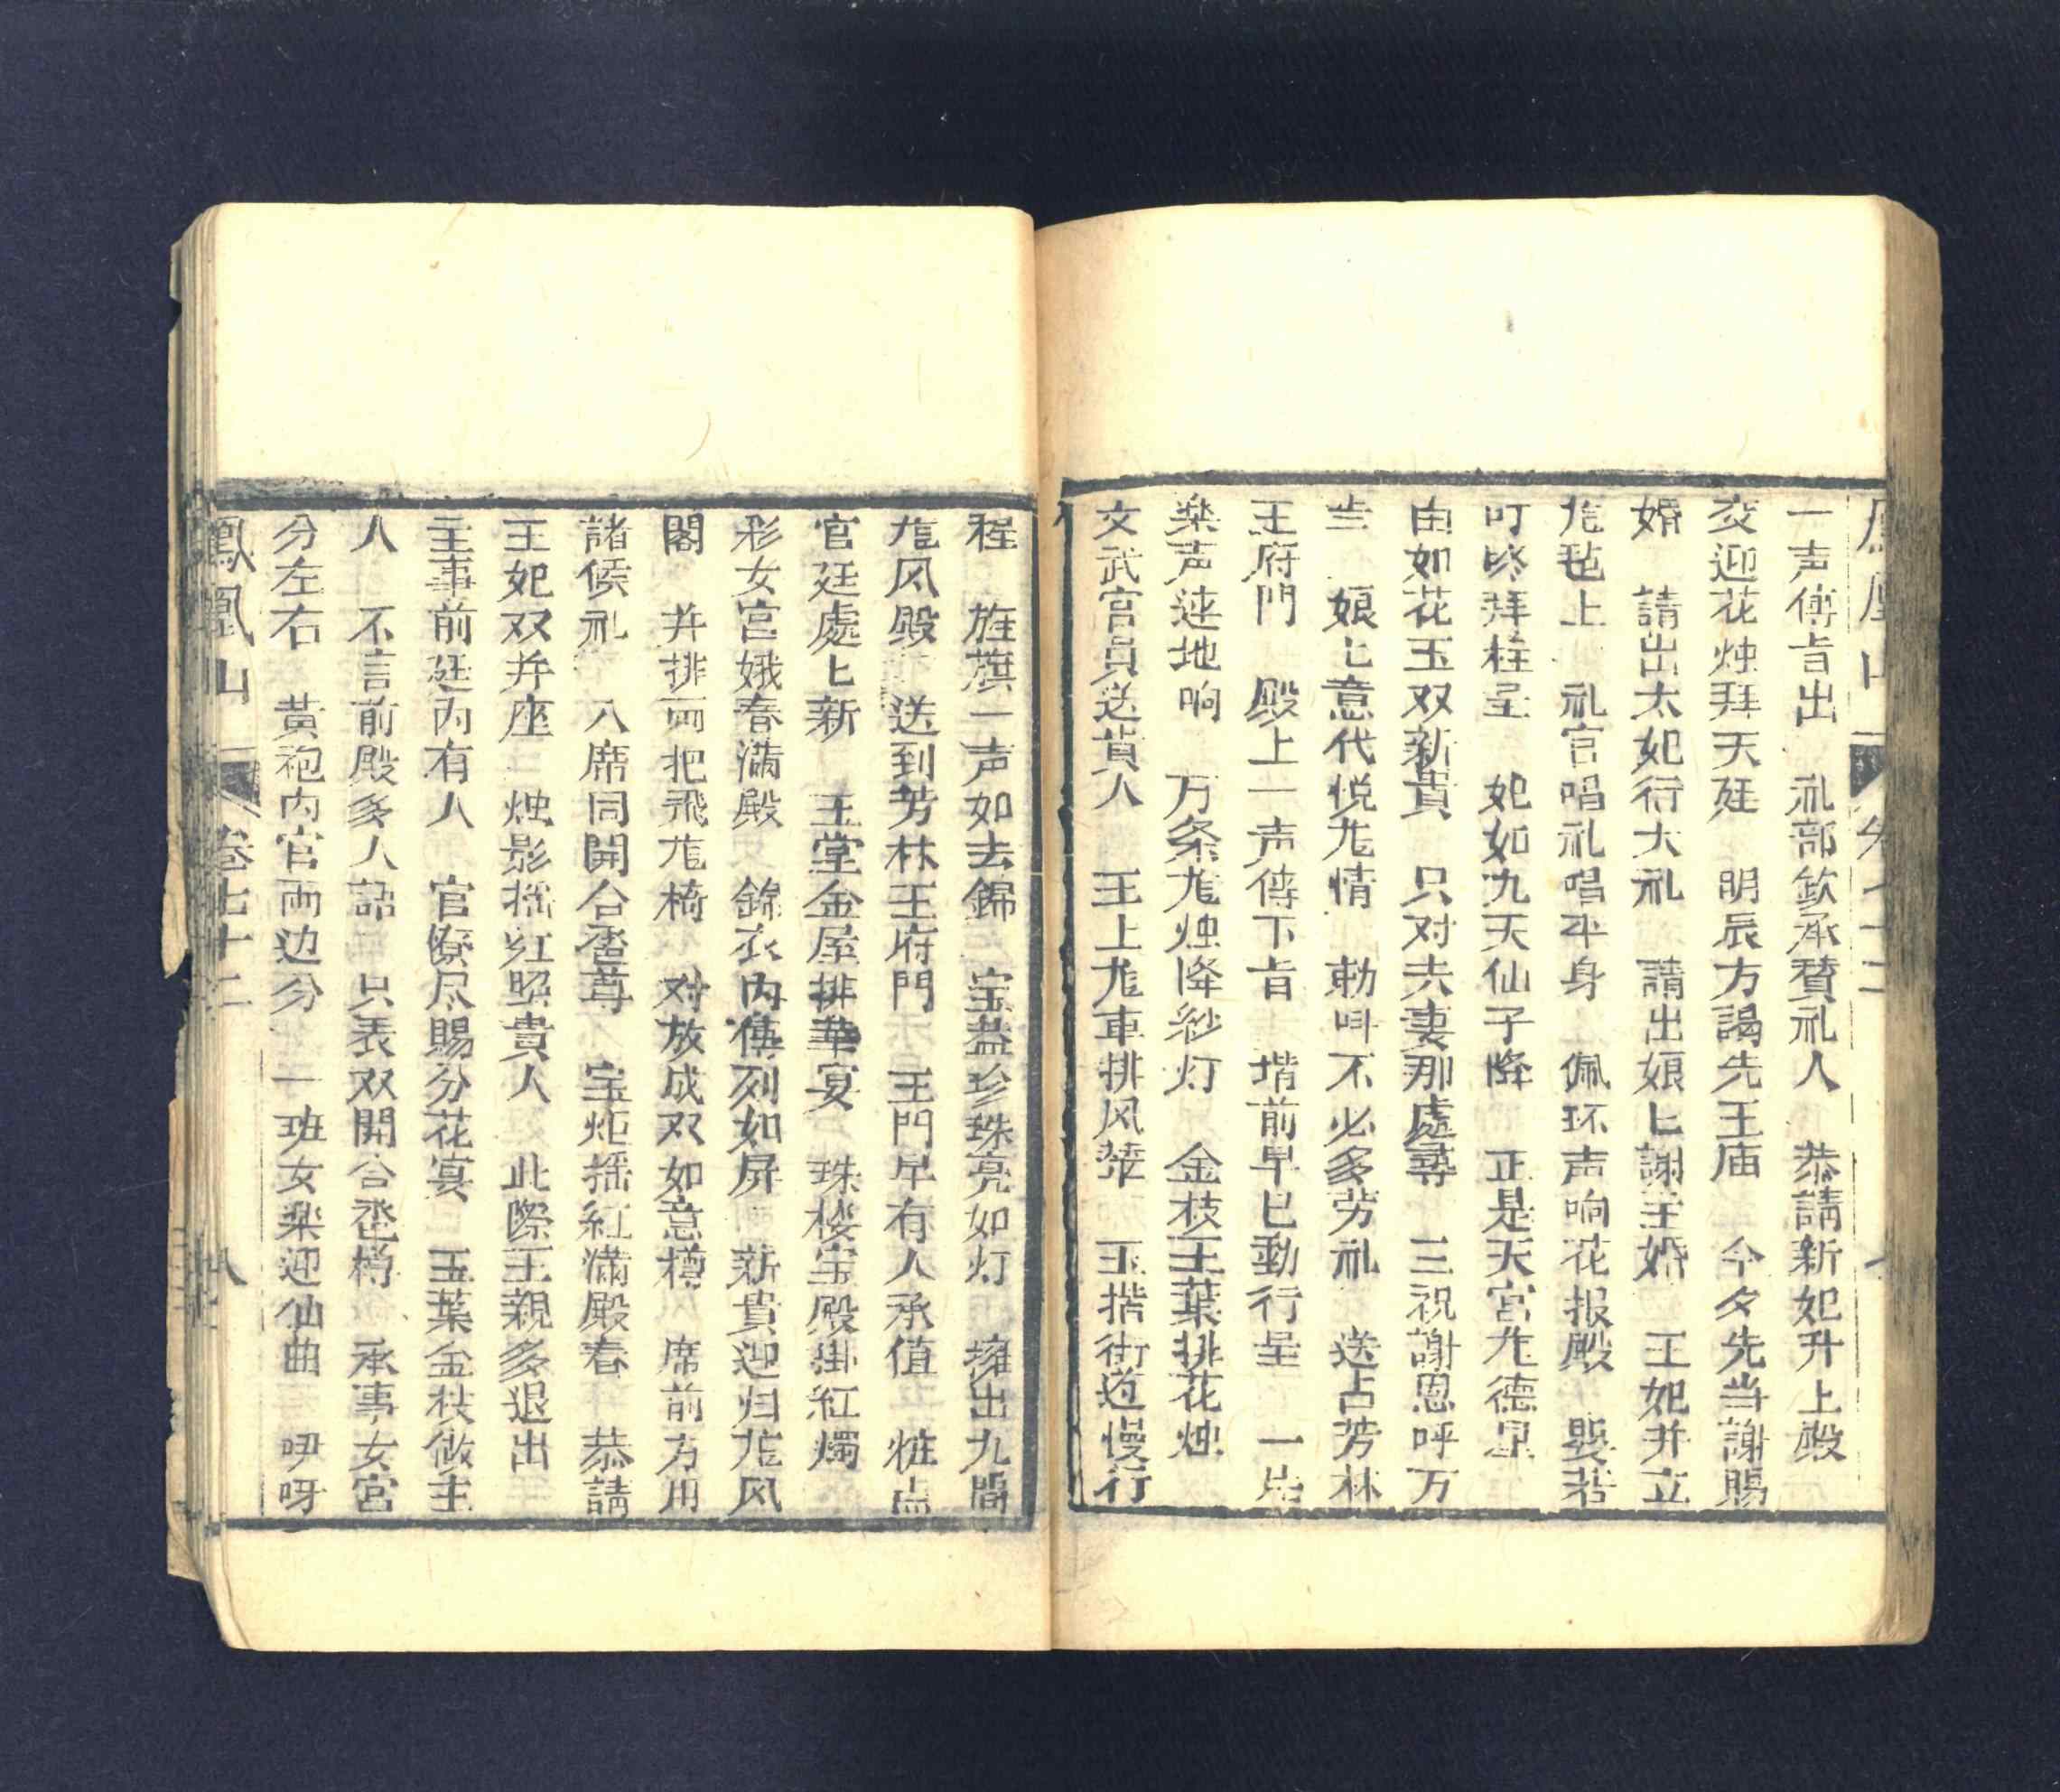 一声傳㫖出　礼部欽承賛礼人　恭請新妃升上殿
交迎花烛拜天廷　明辰方謁先王庙　今夕先当謝賜
婚　請出太妃行大礼　請出娘匕謝主婚　王妃并立
尨毡上　礼官唱礼礼唱平身　佩环声响花报殿　㛐若
叮咚拜柱呈　妃如九天仙子降　正是天宫尨德星
由如花玉双新貴　只对夫妻那處尋　三祝謝恩呼万
岁　娘匕意代悦尨情　勅叫不必多劳礼　送占芳林
王府門　殿上一声傳下㫖　堦前早已動行呈　一片
楽声連地响　万条尨烛降紗灯　金枝王葉挑花烛
文武官員送貴人　王上尨車排风辇　玉揩街道慢行
程　旌旗一声如去錦　宝蓋珍珠亮如灯　擁出九間
尨风殿　送到芳林王府門　王門早有人承值　粧点
官廷處匕新　玉堂金屋排華宴　珠楼宝殿掛紅燭
彩女宫娥春满殿　錦衣内傳列如屏　新貴迎归尨风
閣　并排両把飛尨椅　对放成双如意樽　席前方用
諸候礼　入席同開合卺尊　宝炬摇紅满殿春　恭請
王妃双并座　烛影摇红照貴人　此際王親多退出
主事前廷内有人　官僚尽賜分花宴　玉葉金枝做主
人　不言前殿多人語　只表双開合卺樽　承事女宫
分左右　黄袍内官両边分　一班女楽迎仙曲　咿呀
鳳凰山　卷七十二　八